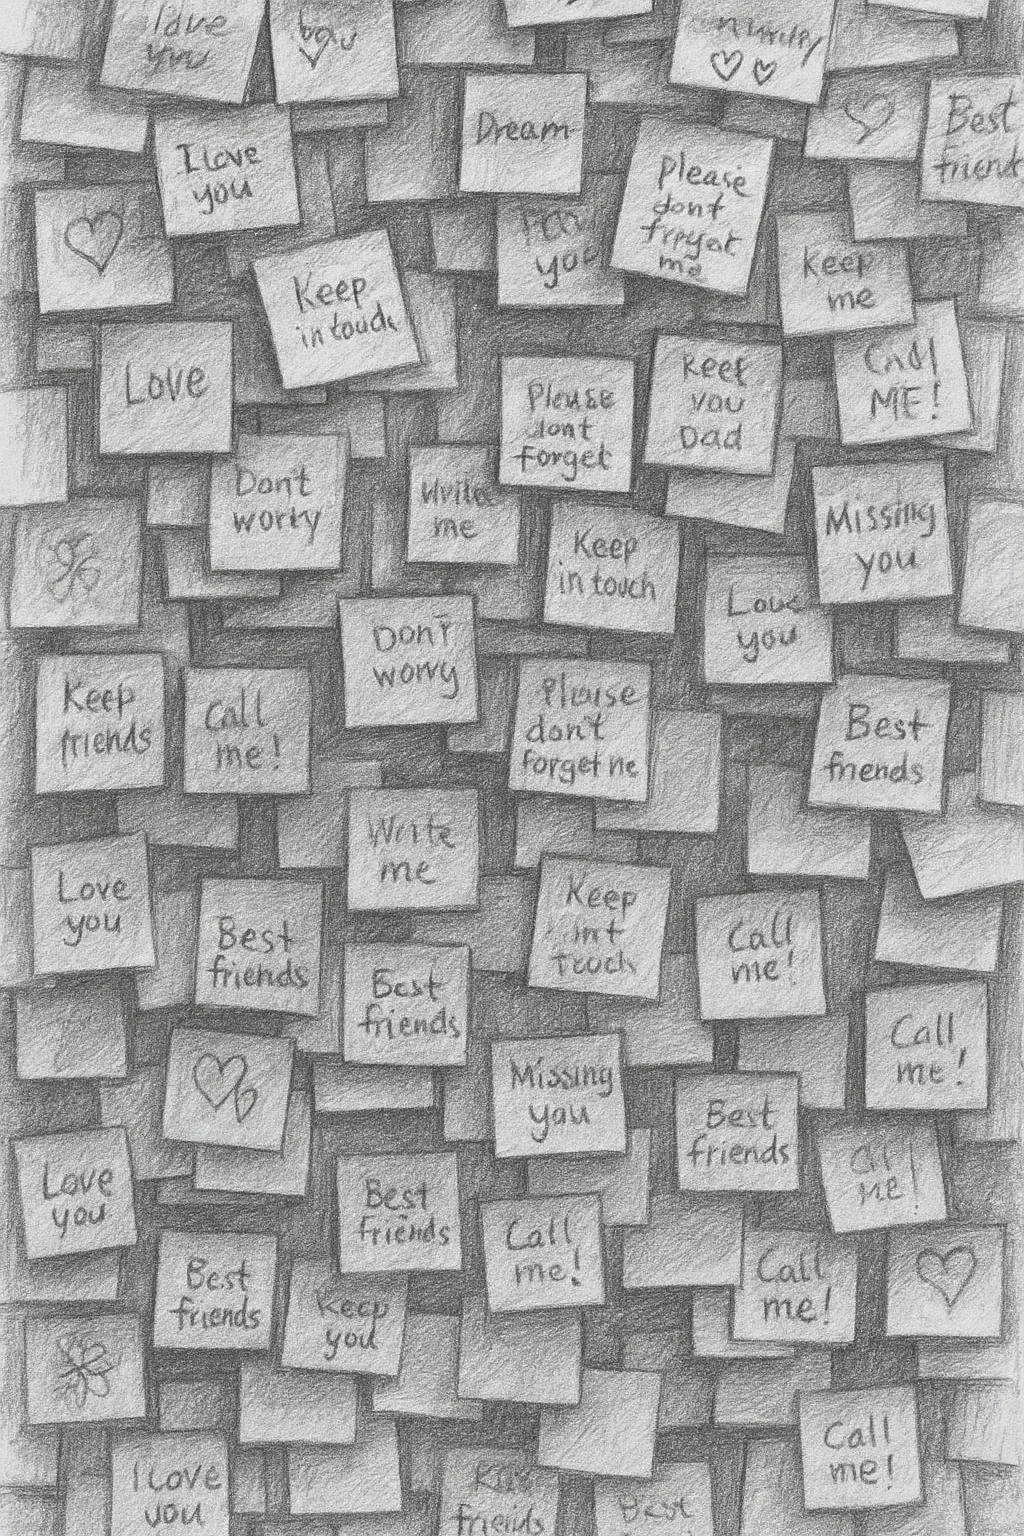 love
you
Dream
Best
I Love
you
Please
dont
me
you
Keep
me
Keep
in touch
ME!
Love
Please
dont
forget
you
Dad
Don't
worry
Write
me
Missing
you
Keep
in touch
Love
you
Don't
worry
Keep
friends
Call
me!
Please
don't
forget me
Best
friends
Write
me
Love
you
Best
friends
Keep
int
touch
Call
me!
Best
friends
Call
me!
Missing
yau
Best
friends
me!
Love
you
Best
friends
Call
me!
Best
friends
Keep
you
Call
me!
Call
me!
I Love
you
friends
Best